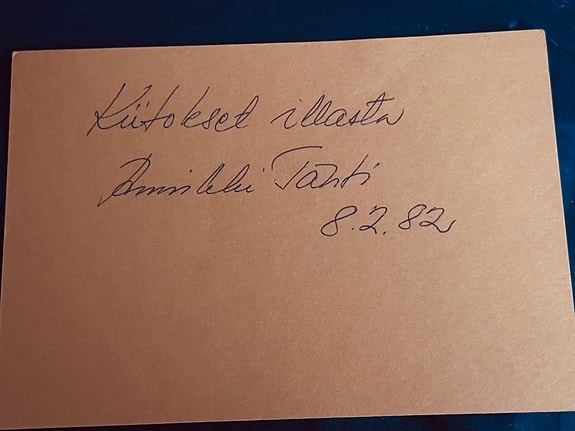 Kiitokset illasta
Annikki Tähti
8.2.82